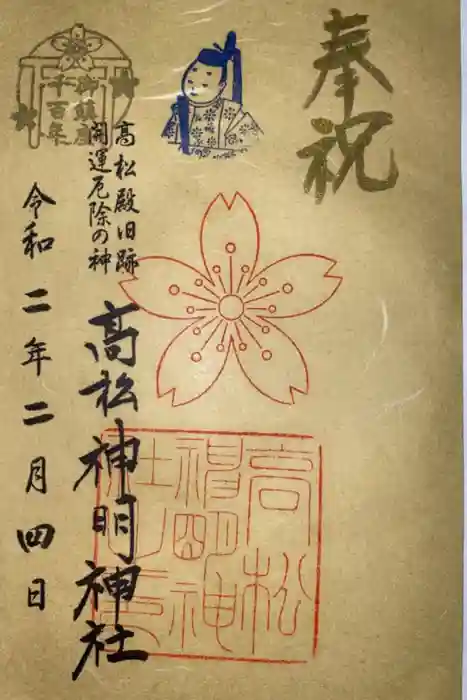 奉祝
高松殿旧跡
開運厄除の神
高松神明神社
令和二年二月四日
御鎮座
千百年